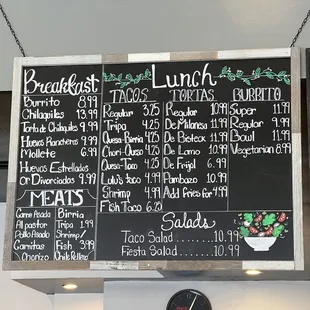 Breakfast
Burrito 8.99
Chilaquiles 13.99
Torta de Chilaquiles 9.99
Huevos Rancheros 9.99
Mollete 6.99
Huevos Estrellados
or Divorciados 9.99
MEATS
Carne Asada
Al pastor
Pollo Asado
Carnitas
Chorizo
Birria
Tripa
Shrimp/
Fish 3.99
Chile Relleno
Lunch
TACOS
Regular 3.25
Tripa 4.25
Quesa-Birria 4.25
Chori-Queso 4.25
Quesa-Taco 4.25
Lulu's taco 4.99
Shrimp 4.99
Fish Taco 6.20
TORTAS
Regular 10.99
De Milanesa 11.99
De Bistex 11.99
De Lomo 10.99
De Frijol 6.99
Pambazo 10.99
Add fries for 4.99
BURRITO
Super 11.99
Regular 9.99
Bowl 11.99
Vegetarian 8.99
Salads
Taco Salad ........ 10.99
Fiesta Salad ........ 10.99